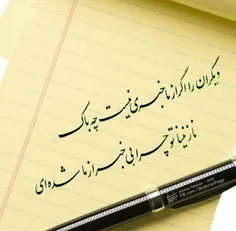 دیگران را اگر از ما خبری نیست چه باک
نازنینا تو چرا بی خبر از ما شده ای